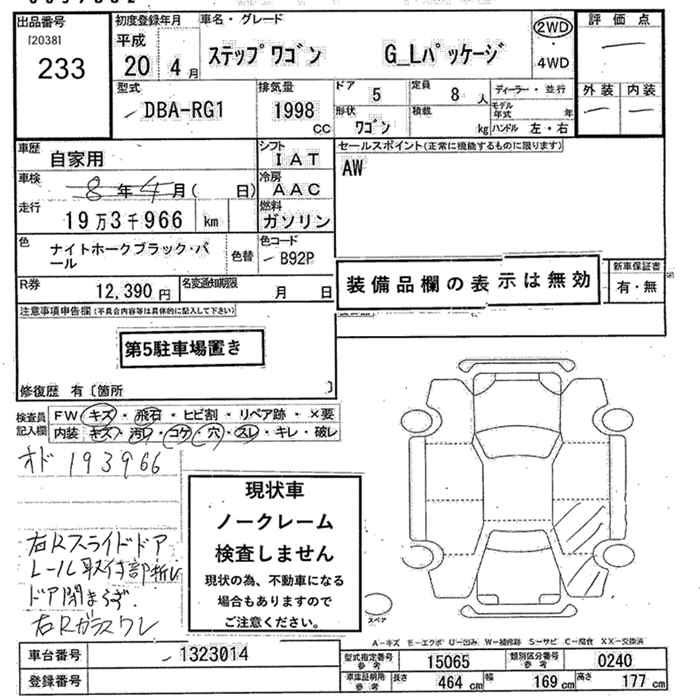 出品番号
[2038]
233
初度登録年月
平成
20 4 月
車名・グレード
ステップワゴン G_Lパッケージ
2WD
・
4WD
評価点
外装 内装
型式
DBA-RG1
排気量
1998 CC
ドア 5
定員 8 人
形状 ワゴン
積載 kg
ディーラー・並行
モデル年式 年
ハンドル 左・右
車歴 自家用
シフト IAT
車検 8年4月( 日)
冷房 AAC
走行 19万3千966 km
燃料 ガソリン
セールスポイント(正常に機能するものに限ります)
AW
色 ナイトホークブラック・パール
色替
色コード B92P
R券 12,390 円
名変通知期限 月 日
装備品欄の表示は無効
新車保証書
有・無
注意事項申告欄(不具合内容等は具体的に記入して下さい)
第5駐車場置き
修復歴 有〔箇所 〕
検査員記入欄
FW キズ・飛石・ヒビ割・リペア跡・×要
内装 キズ・汚レ・コゲ・穴・スレ・キレ・破レ
オド 193966
右Rスライドドア
レール取付部折レ
ドア閉まらず.
右Rガラスワレ
現状車
ノークレーム
検査しません
現状の為、不動車になる
場合もありますので
ご注意ください。
スペア
A-キズ E-エクボ U-凹み W-補修跡 S-サビ C-腐食 XX-交換済
車台番号 1323014
型式指定番号 参考 15065
類別区分番号 参考 0240
登録番号
車庫証明用 参考 長さ 464 cm 幅 169 cm 高さ 177 cm